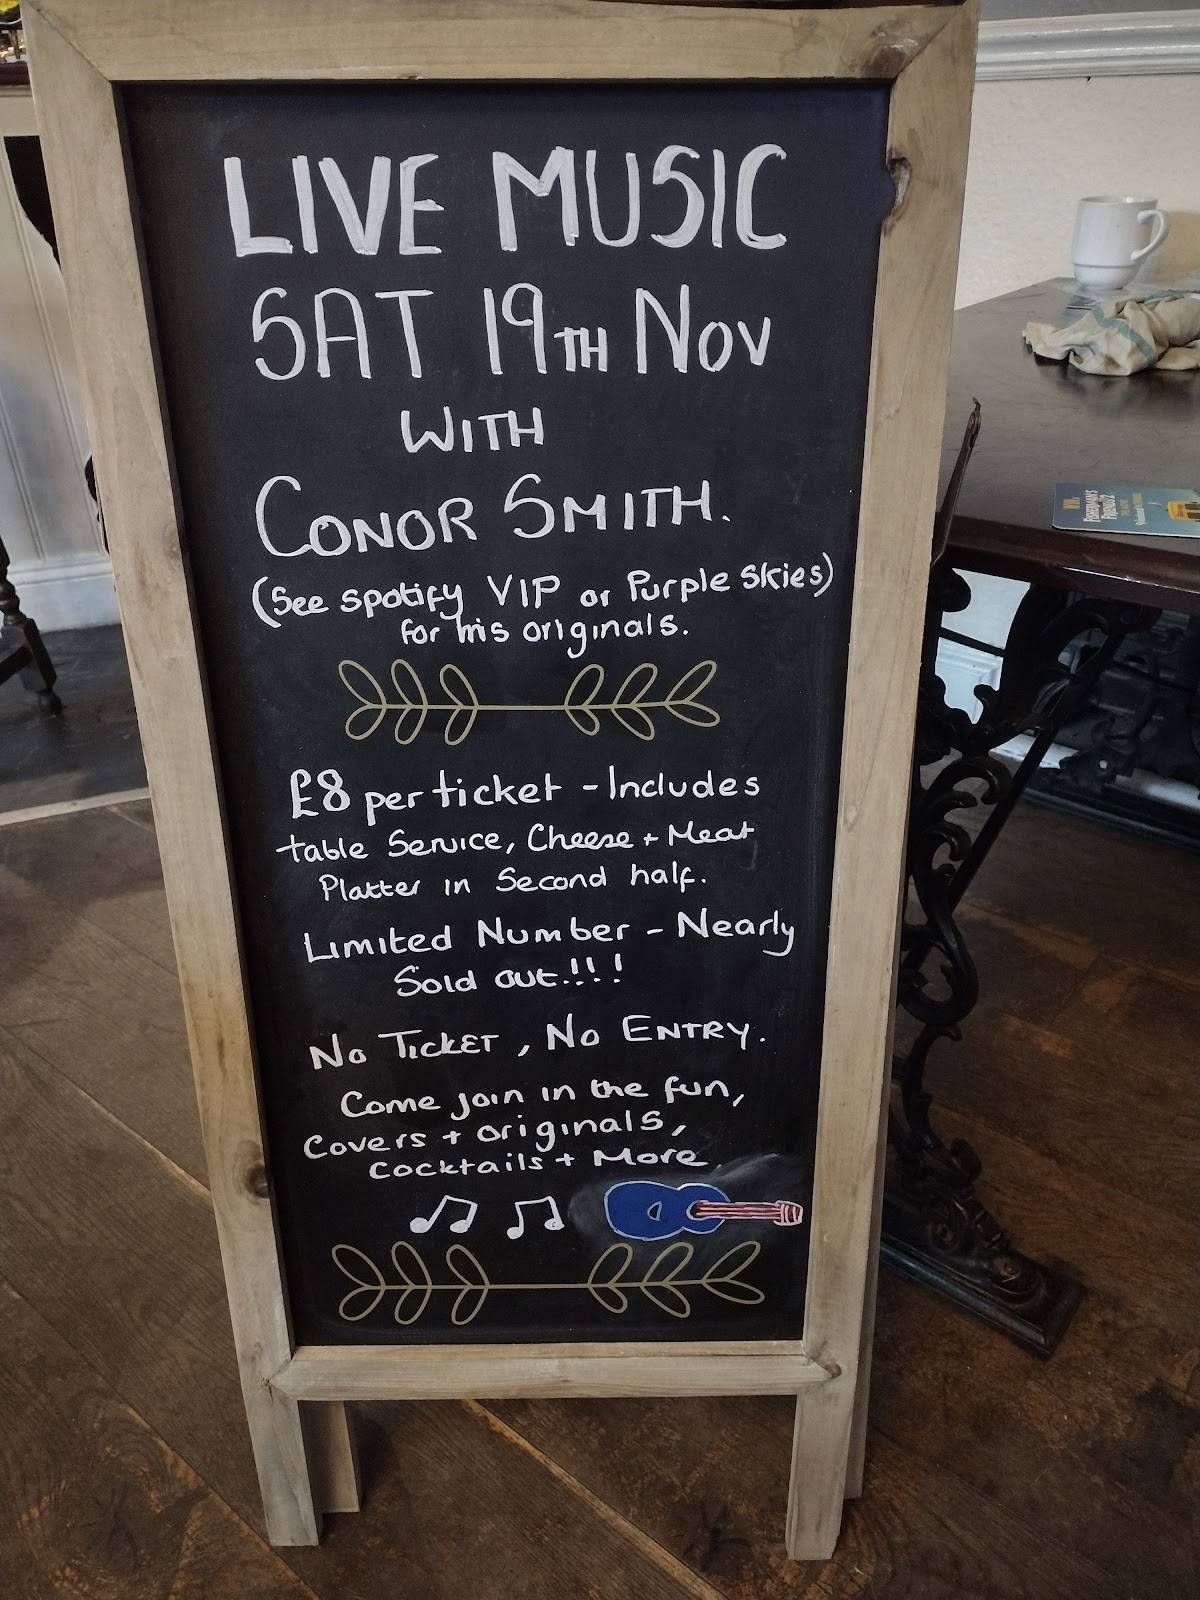 LIVE MUSIC
SAT 19TH NOV
WITH
CONOR SMITH.
(See spotify VIP or Purple skies)
for his originals.
£8 per ticket - Includes
table Service, Cheese + Meat
Platter in Second half.
Limited Number - Nearly
Sold out!!!!
NO TICKET, NO ENTRY.
Come join in the fun,
Covers + originals,
Cocktails + More.
FISHERMAN'S
FRIENDS 2